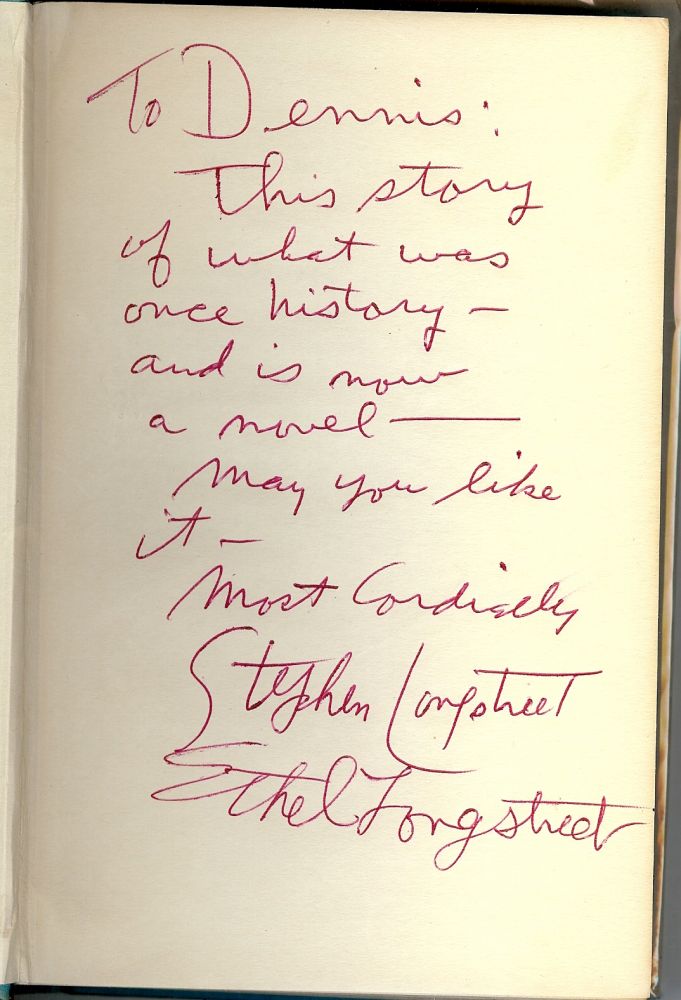 To Dennis:
This story
of what was
once history —
and is now
a novel —
May you like
it —
Most Cordially
Stephen Longstreet
Ethel Longstreet